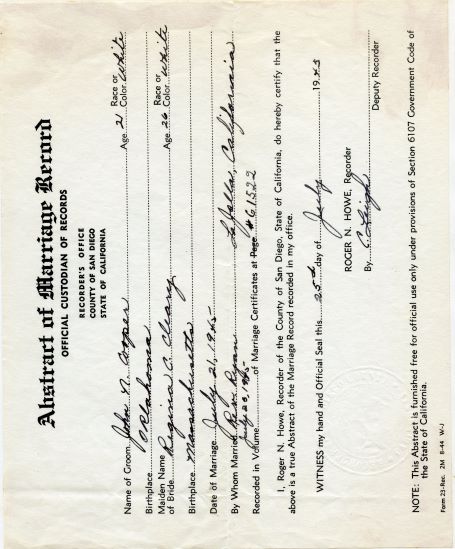 Abstract of Marriage Record
OFFICIAL CUSTODIAN OF RECORDS
RECORDER'S OFFICE
COUNTY OF SAN DIEGO
STATE OF CALIFORNIA
Name of Groom John N. Cooper Age 21 Race or Color White
Birthplace Oklahoma
Maiden Name of Bride Regina C. Cleary Age 26 Race or Color White
Birthplace Massachusetts
Date of Marriage July 21, 1945
By Whom Married Rev. Ryan La Jolla, California
July 23, 1945
Recorded in Volume of Marriage Certificates at Page #61522
I, Roger N. Howe, Recorder of the County of San Diego, State of California, do hereby certify that the
above is a true Abstract of the Marriage Record recorded in my office.
WITNESS my hand and Official Seal this 25th day of July 1945
ROGER N. HOWE, Recorder
By C. Leigh
Deputy Recorder
NOTE: This Abstract is furnished free for official use only under provisions of Section 6107 Government Code of
the State of California.
Form 23-Rec. 2M 8-44 W-J